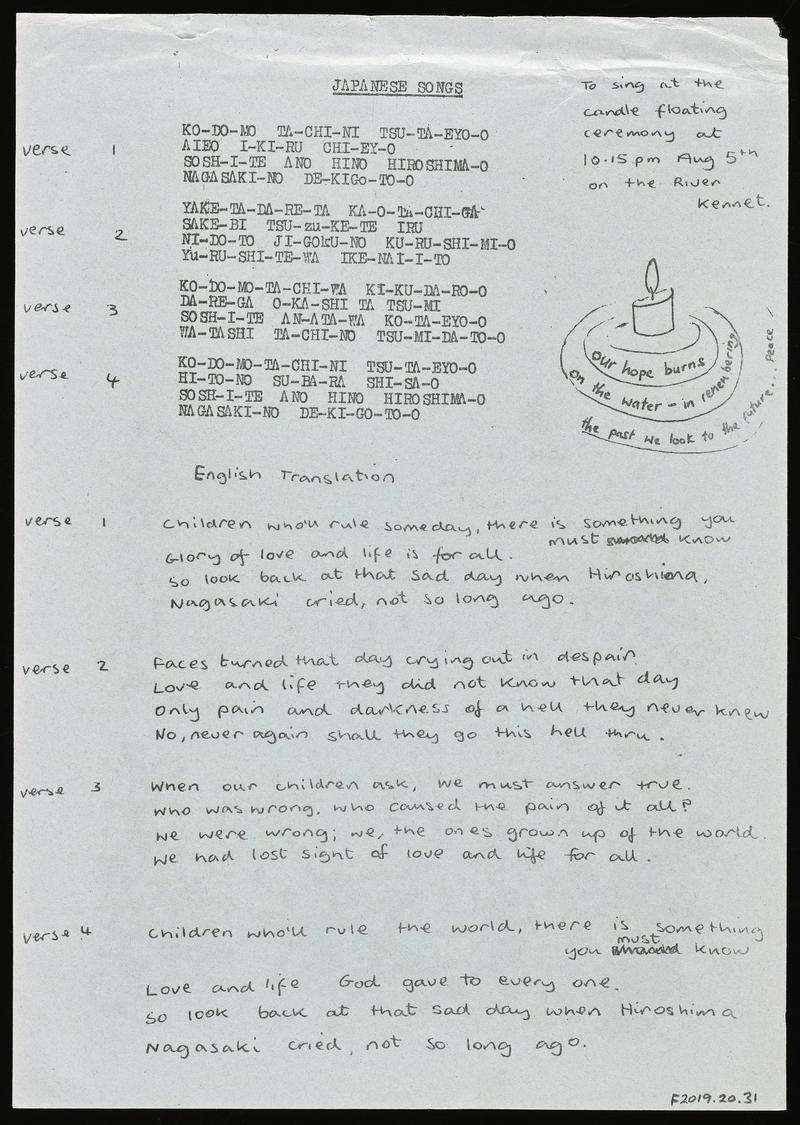 JAPANESE SONGS
To sing at the
candle floating
ceremony at
10.15 pm Aug 5th
on the River
Kennet.
verse 1
KO-DO-MO TA-CHI-NI TSU-TA-EYO-O
AIEO I-KI-RU CHI-EY-O
SOSH-I-TE ANO HINO HIROSHIMA-O
NAGASAKI-NO DE-KIGo-TO-O
verse 2
YAKE-TA-DA-RE-TA KA-O-TA-CHI-GA
SAKE-BI TSU-zu-KE-TE IRU
NI-DO-TO JI-GOkU-NO KU-RU-SHI-MI-O
Yu-RU-SHI-TE-WA IKE-NAI-I-TO
verse 3
KO-DO-MO-TA-CHI-WA KI-KU-DA-RO-O
DA-RE-GA O-KA-SHI TA TSU-MI
SOSH-I-TE AN-ATA-WA KO-TA-EYO-O
WA-TASHI TA-CHI-NO TSU-MI-DA-TO-O
verse 4
KO-DO-MO-TA-CHI-NI TSU-TA-EYO-O
HI-TO-NO SU-BA-RA SHI-SA-O
SOSH-I-TE ANO HINO HIROSHIMA-O
NAGASAKI-NO DE-KI-GO-TO-O
our hope burns
on the water - in remembering
the past we look to the future... Peace /
English Translation
verse 1
Children who'll rule someday, there is something you
must know
Glory of love and life is for all.
So look back at that sad day when Hiroshima,
Nagasaki cried, not so long ago.
verse 2
Faces turned that day crying out in despair
Love and life they did not know that day
Only pain and darkness of a hell they never knew
No, never again shall they go this hell thru.
verse 3
When our children ask, we must answer true.
Who was wrong, who caused the pain of it all?
We were wrong; we, the ones grown up of the world.
We had lost sight of love and life for all.
verse 4
Children who'll rule the world, there is something
you must know
Love and life God gave to every one.
So look back at that sad day when Hiroshima
Nagasaki cried, not so long ago.
F2019.20.31